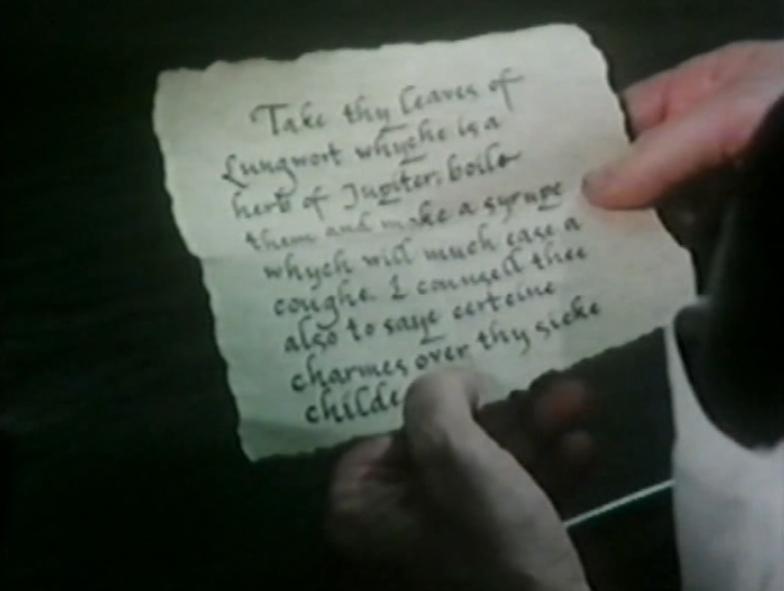 Take thy leaves of
Lungwort whyche is a
herb of Jupiter: boile
them and make a syrupe
whych will much ease a
coughe. I counsell thee
also to saye certeine
charmes over thy sicke
childe